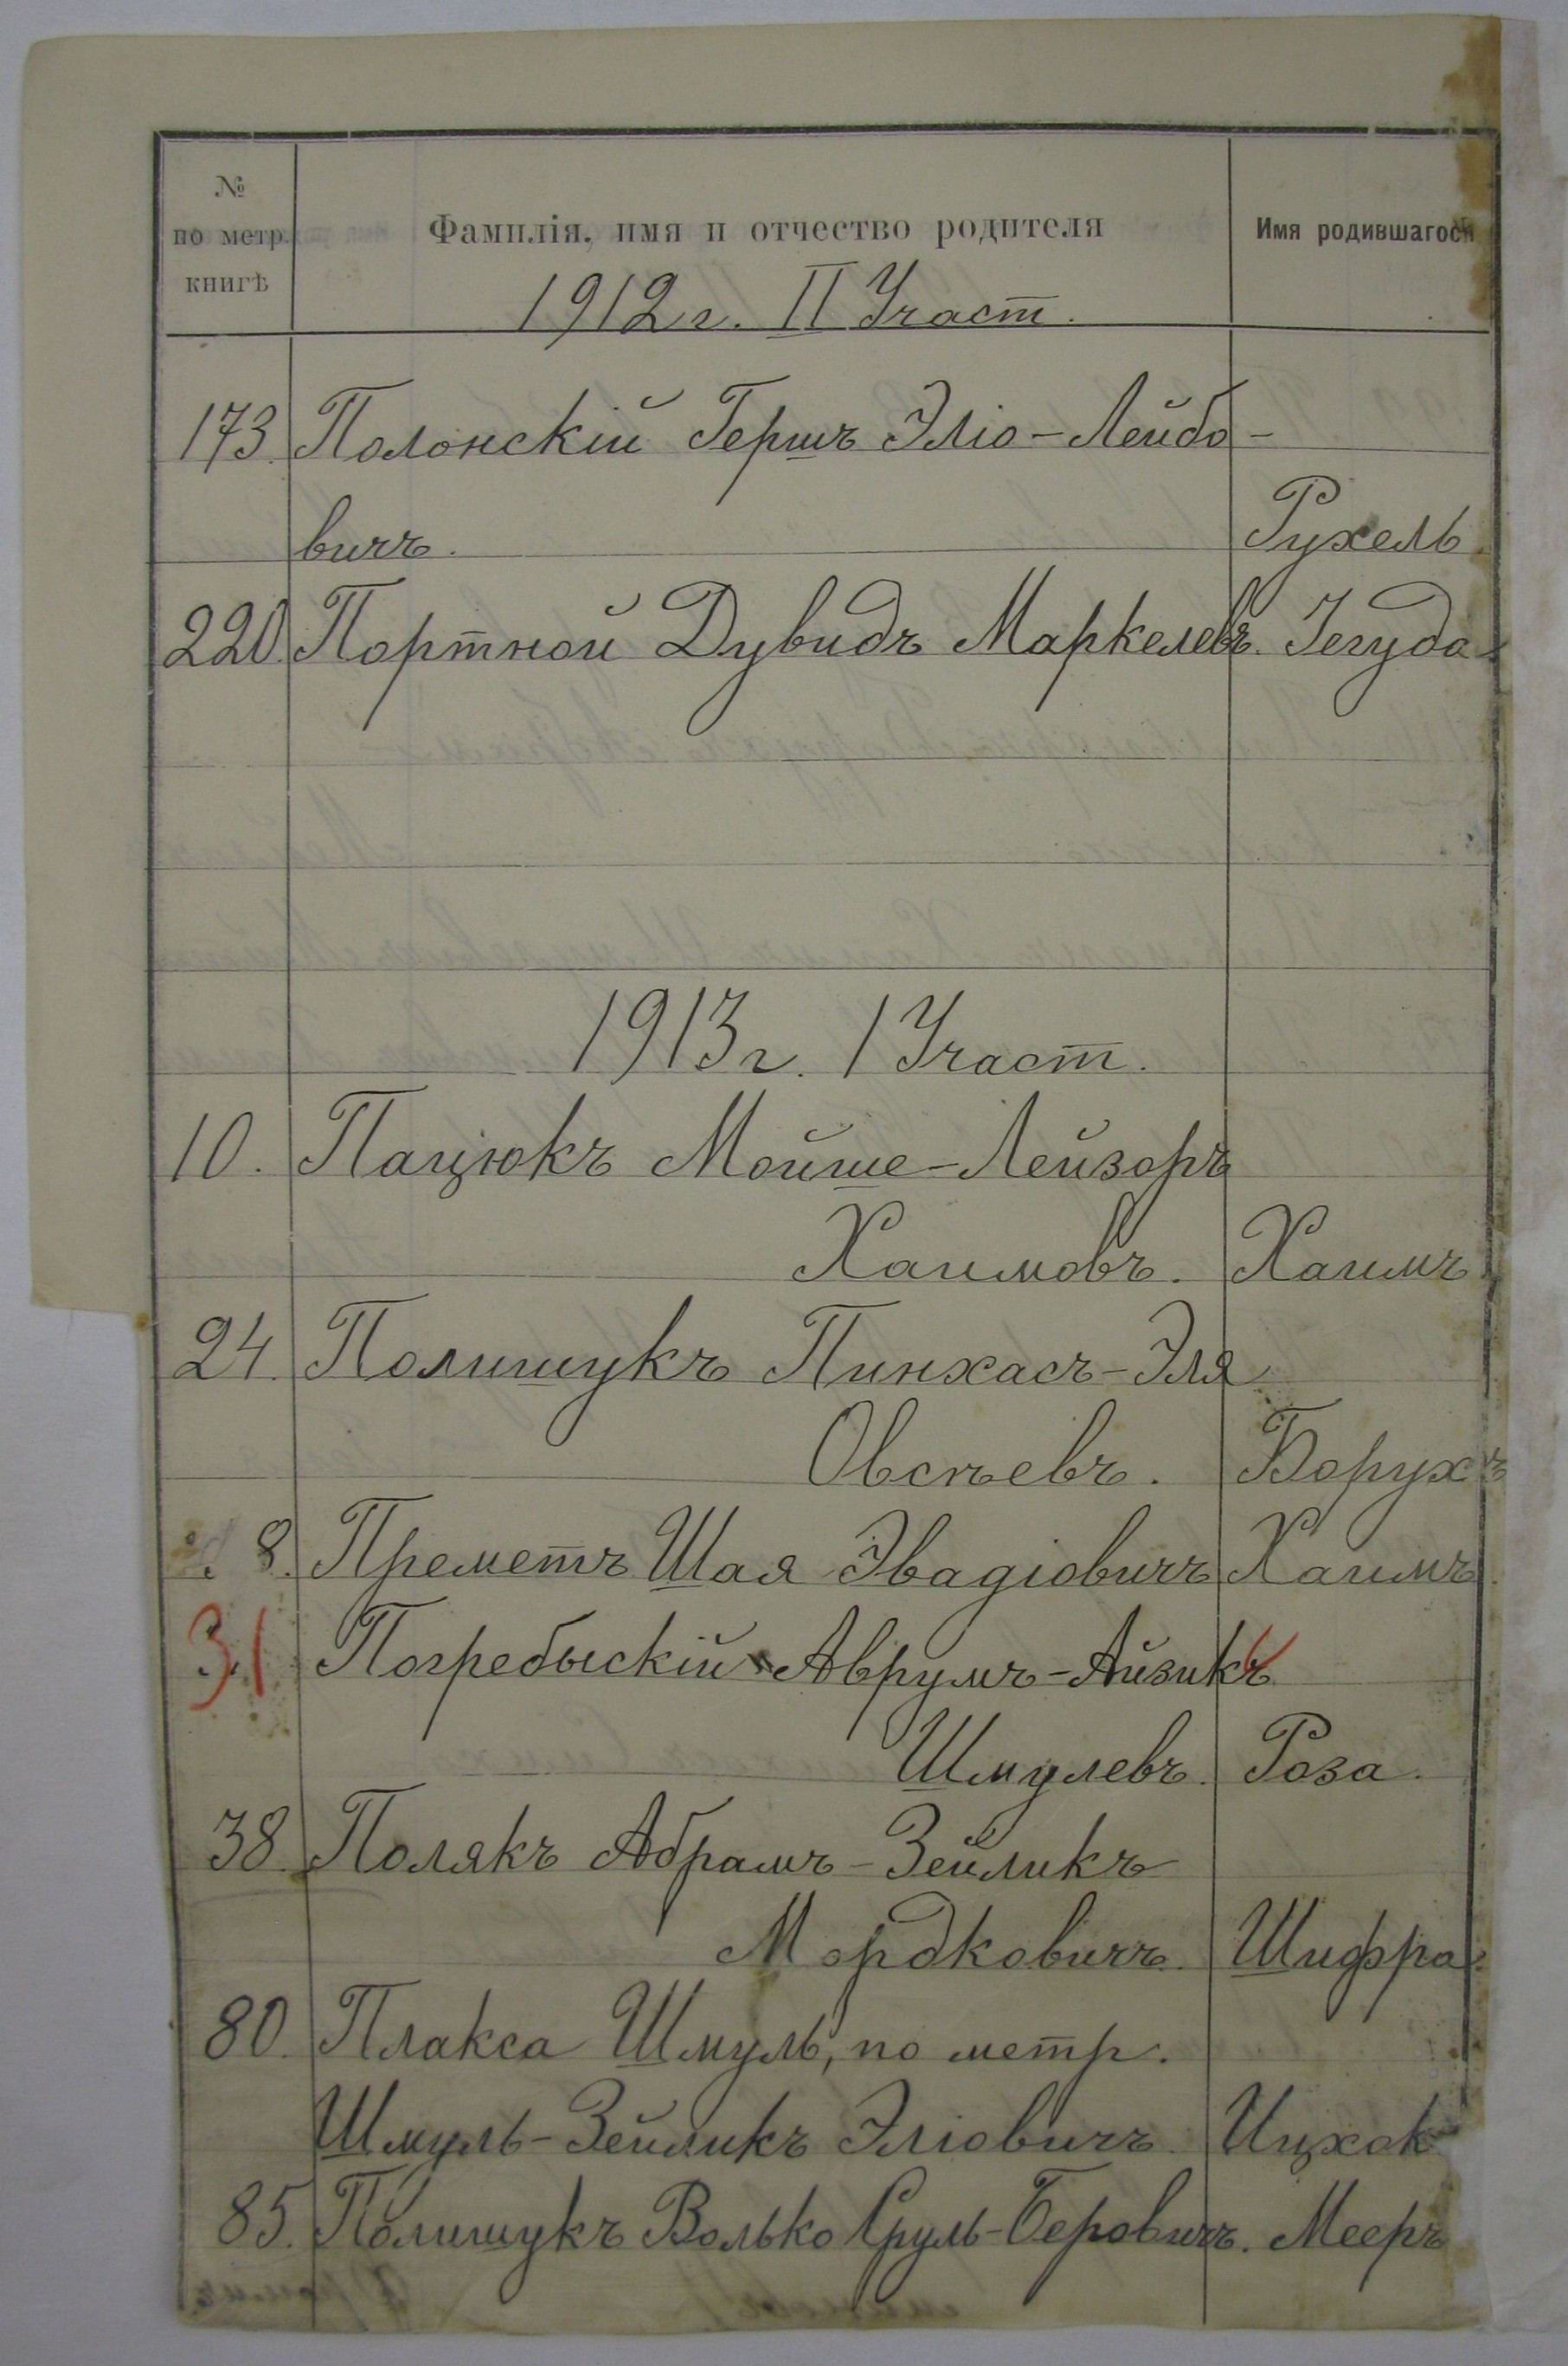 №
по метр.
книгѣ
Фамилія, имя и отчество родителя
Имя родившагося
1912 г. II Участ.
173. Полонскій Гершъ Эліо-Лейбо-
вичъ. Рухель.
220. Портной Дувидъ Маркелевъ. Іегуда
1913 г. I Участ.
10. Пацюкъ Мойше-Лейзоръ
Хаимовъ. Хаимъ
24. Полишукъ Пинхасъ-Эля
Овсѣевъ. Борухъ
8. Преметъ Шая Эвадіовичъ Хаимъ.
31 Погребыскій Аврумъ-Айзикъ
Шмулевъ. Роза.
38 Полякъ Абрамъ-Зейликъ
Мордковичъ. Шифра.
80. Плакса Шмуль, по метр.
Шмуль-Зейликъ Эліовичъ. Ицхок
85. Полишукъ Волько Сруль-Беровичъ. Мееръ